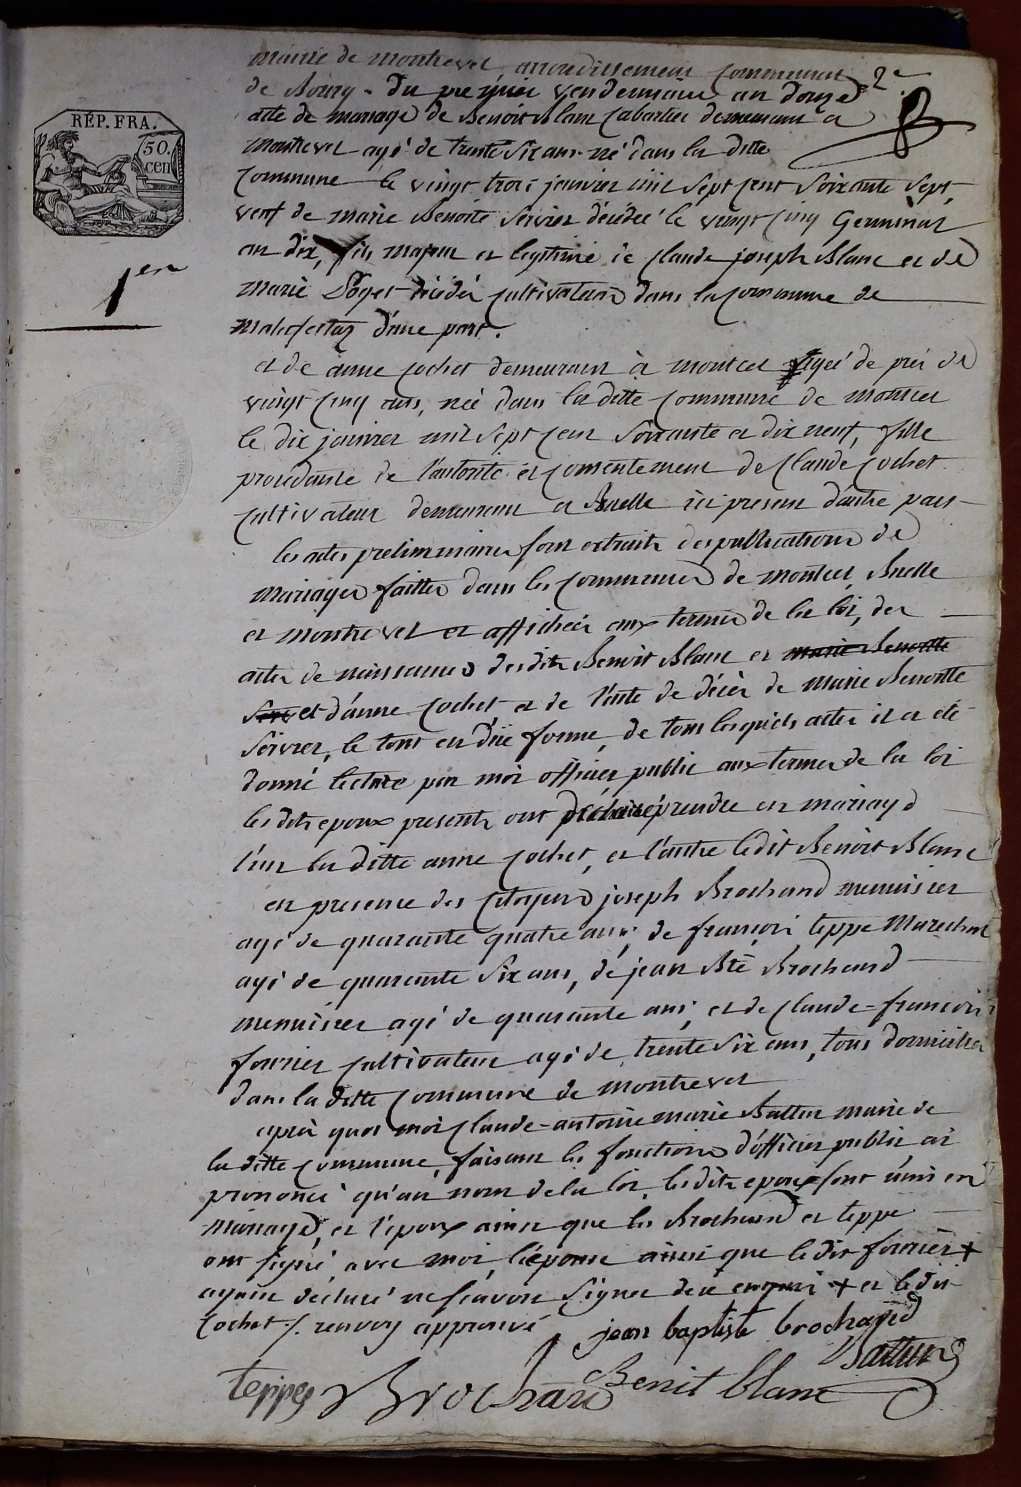 RÉP. FRA.
50.
cen
1er
2e
mairie de montrevel, arrondissement communal
de Bourg - du premier vendemiaire an douze
acte de mariage de Benoit Blanc Cabartier demeurant a
montrevel agé de trente six ans né dans la ditte
commune le vingt trois janvier mil sept cent soixante sept,
veuf de marie Benoite Servier décédée le vingt cinq Germinal
an dix, fils majeur et legitime de Claude joseph Blanc et de
marie décédés cultivateurs dans la commune de
malafretaz d'une part.
et de anne cochet demeurant à montcet agée de près de
vingt cinq ans, née dans la ditte commune de montcet
le dix janvier mil sept cent soixante et dix neuf, fille
procedante de l'autorité et consentement de Claude Cochet
cultivateur demeurant a Buelle ici present d'autre part
les actes preliminaires sont extraits des publications de
mariages faittes dans les communes de montcet, Buelle
et montrevel et affichées aux termes de la loi, des
actes de naissances desdits Benoit Blanc et marie Benoitte
et d'anne Cochet et de l'acte de décès de marie Benoitte
Servier, le tout en due forme, de tous lesquels actes il a été
donné lecture par moi officier public aux termes de la loi
les dits epoux presents ont déclaré prendre en mariage
l'un la ditte anne cochet, et l'autre ledit Benoit Blanc
en presence des Citoyens joseph Brochand menuisier
agé de quarante quatre ans, de françois teppe Marechal
agé de quarante six ans, de jean Bte Brochand
menuisier agé de quarante ans, et de Claude-françois
fourier cultivateur agé de trente six ans, tous domiciliés
dans la ditte commune de montrevel
après quoi moi Claude-antoine marie Battur maire de
la ditte commune, faisant les fonctions d'officier public ai
prononcé qu'au nom de la loi, les dits epoux sont unis en
mariage, et l'epoux ainsi que les Brochand et teppe
ont signé avec moi, l'epouse ainsi que le dit fourier +
ayant déclaré ne scavoir signer de ce enquis + et le dit
Cochet ./. renvoy approuvé
jean baptiste brochand
Battur
teppe Brochand Benit blanc